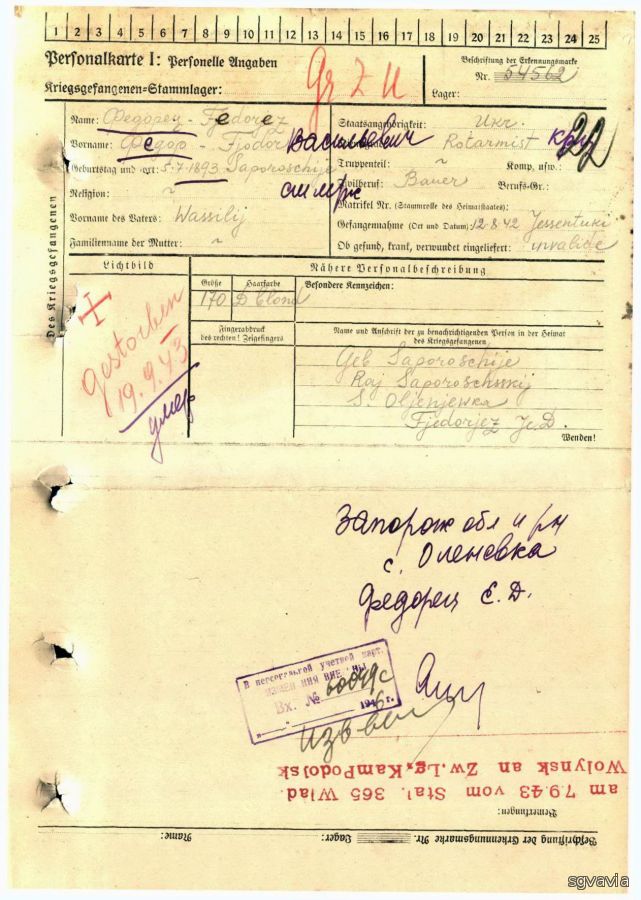 1 2 3 4 5 6 7 8 9 10 11 12 13 14 15 16 17 18 19 20 21 22 23 24 25
Personalkarte I: Personelle Angaben
Kriegsgefangenen-Stammlager:
Beschriftung der Erkennungsmarke
Nr. 54562
Lager:
Des Kriegsgefangenen
Name: Федорец - Fjedorez
Vorname: Федор - Fjodor Васильевич
Geburtstag und -ort: 5.7.1893 Saporoschije
Religion: ~
Vorname des Vaters: Wassilij
Familienname der Mutter: ~
Staatsangehörigkeit: Ukr.
Rotarmist
Truppenteil: ~ Komp. usw.:
Zivilberuf: Bauer Berufs-Gr.:
Matrikel Nr. (Stammrolle des Heimatstaates):
Gefangennahme (Ort und Datum): 12.8.42 Jessentuki
Ob gesund, krank, verwundet eingeliefert: invalide
Lichtbild
gestorben
19.9.43
умер
Nähere Personalbeschreibung
Größe Haarfarbe Besondere Kennzeichen:
170 D'blond
Fingerabdruck
des rechten! Zeigefingers
Name und Anschrift der zu benachrichtigenden Person in der Heimat
des Kriegsgefangenen
Geb Saporoschije
Raj Saporoschskij
S. Oljenjewka
Fjedorjez Je. D.
Wenden!
Запорож обл и рн
с. Оленевка
Федорец Е. Д.
В персональной учетной карт.
ИЗМЕНЕНИЯ ВНЕСЕНЫ
Вх. № 60049с
1946 г.
am 7.9.43 vom Stal. 365 Wlad.
Wolynsk an Zw.Lg.KamPodolsk
Bemerkungen:
Beschriftung der Erkennungsmarke Nr. Lager: Name:
sgvavia